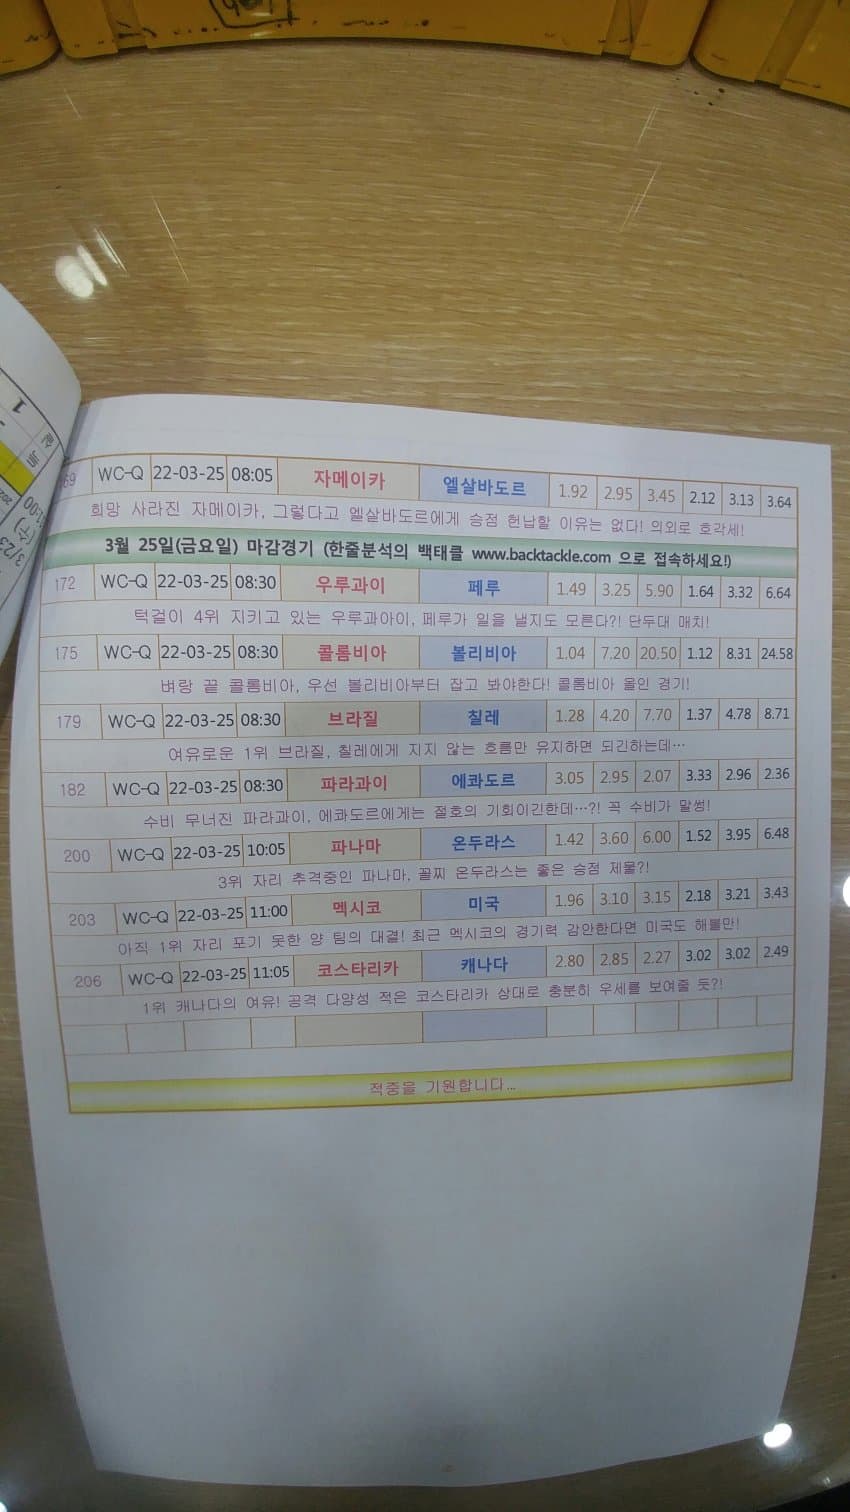 69 WC-Q 22-03-25 08:05 자메이카 엘살바도르 1.92 2.95 3.45 2.12 3.13 3.64
희망 사라진 자메이카, 그렇다고 엘살바도르에게 승점 헌납할 이유는 없다! 의외로 호각세!
3월 25일(금요일) 마감경기 (한줄분석의 백태클 www.backtackle.com 으로 접속하세요!)
172 WC-Q 22-03-25 08:30 우루과이 페루 1.49 3.25 5.90 1.64 3.32 6.64
턱걸이 4위 지키고 있는 우루과아이, 페루가 일을 낼지도 모른다?! 단두대 매치!
175 WC-Q 22-03-25 08:30 콜롬비아 볼리비아 1.04 7.20 20.50 1.12 8.31 24.58
벼랑 끝 콜롬비아, 우선 볼리비아부터 잡고 봐야한다! 콜롬비아 올인 경기!
179 WC-Q 22-03-25 08:30 브라질 칠레 1.28 4.20 7.70 1.37 4.78 8.71
여유로운 1위 브라질, 칠레에게 지지 않는 흐름만 유지하면 되긴하는데…
182 WC-Q 22-03-25 08:30 파라과이 에콰도르 3.05 2.95 2.07 3.33 2.96 2.36
수비 무너진 파라과이, 에콰도르에게는 절호의 기회이긴한데…?! 꼭 수비가 말썽!
200 WC-Q 22-03-25 10:05 파나마 온두라스 1.42 3.60 6.00 1.52 3.95 6.48
3위 자리 추격중인 파나마, 꼴찌 온두라스는 좋은 승점 제물?!
203 WC-Q 22-03-25 11:00 멕시코 미국 1.96 3.10 3.15 2.18 3.21 3.43
아직 1위 자리 포기 못한 양 팀의 대결! 최근 멕시코의 경기력 감안한다면 미국도 해볼만!
206 WC-Q 22-03-25 11:05 코스타리카 캐나다 2.80 2.85 2.27 3.02 3.02 2.49
1위 캐나다의 여유! 공격 다양성 적은 코스타리카 상대로 충분히 우세를 보여줄 듯?!
적중을 기원합니다…
1
3/23 (수)